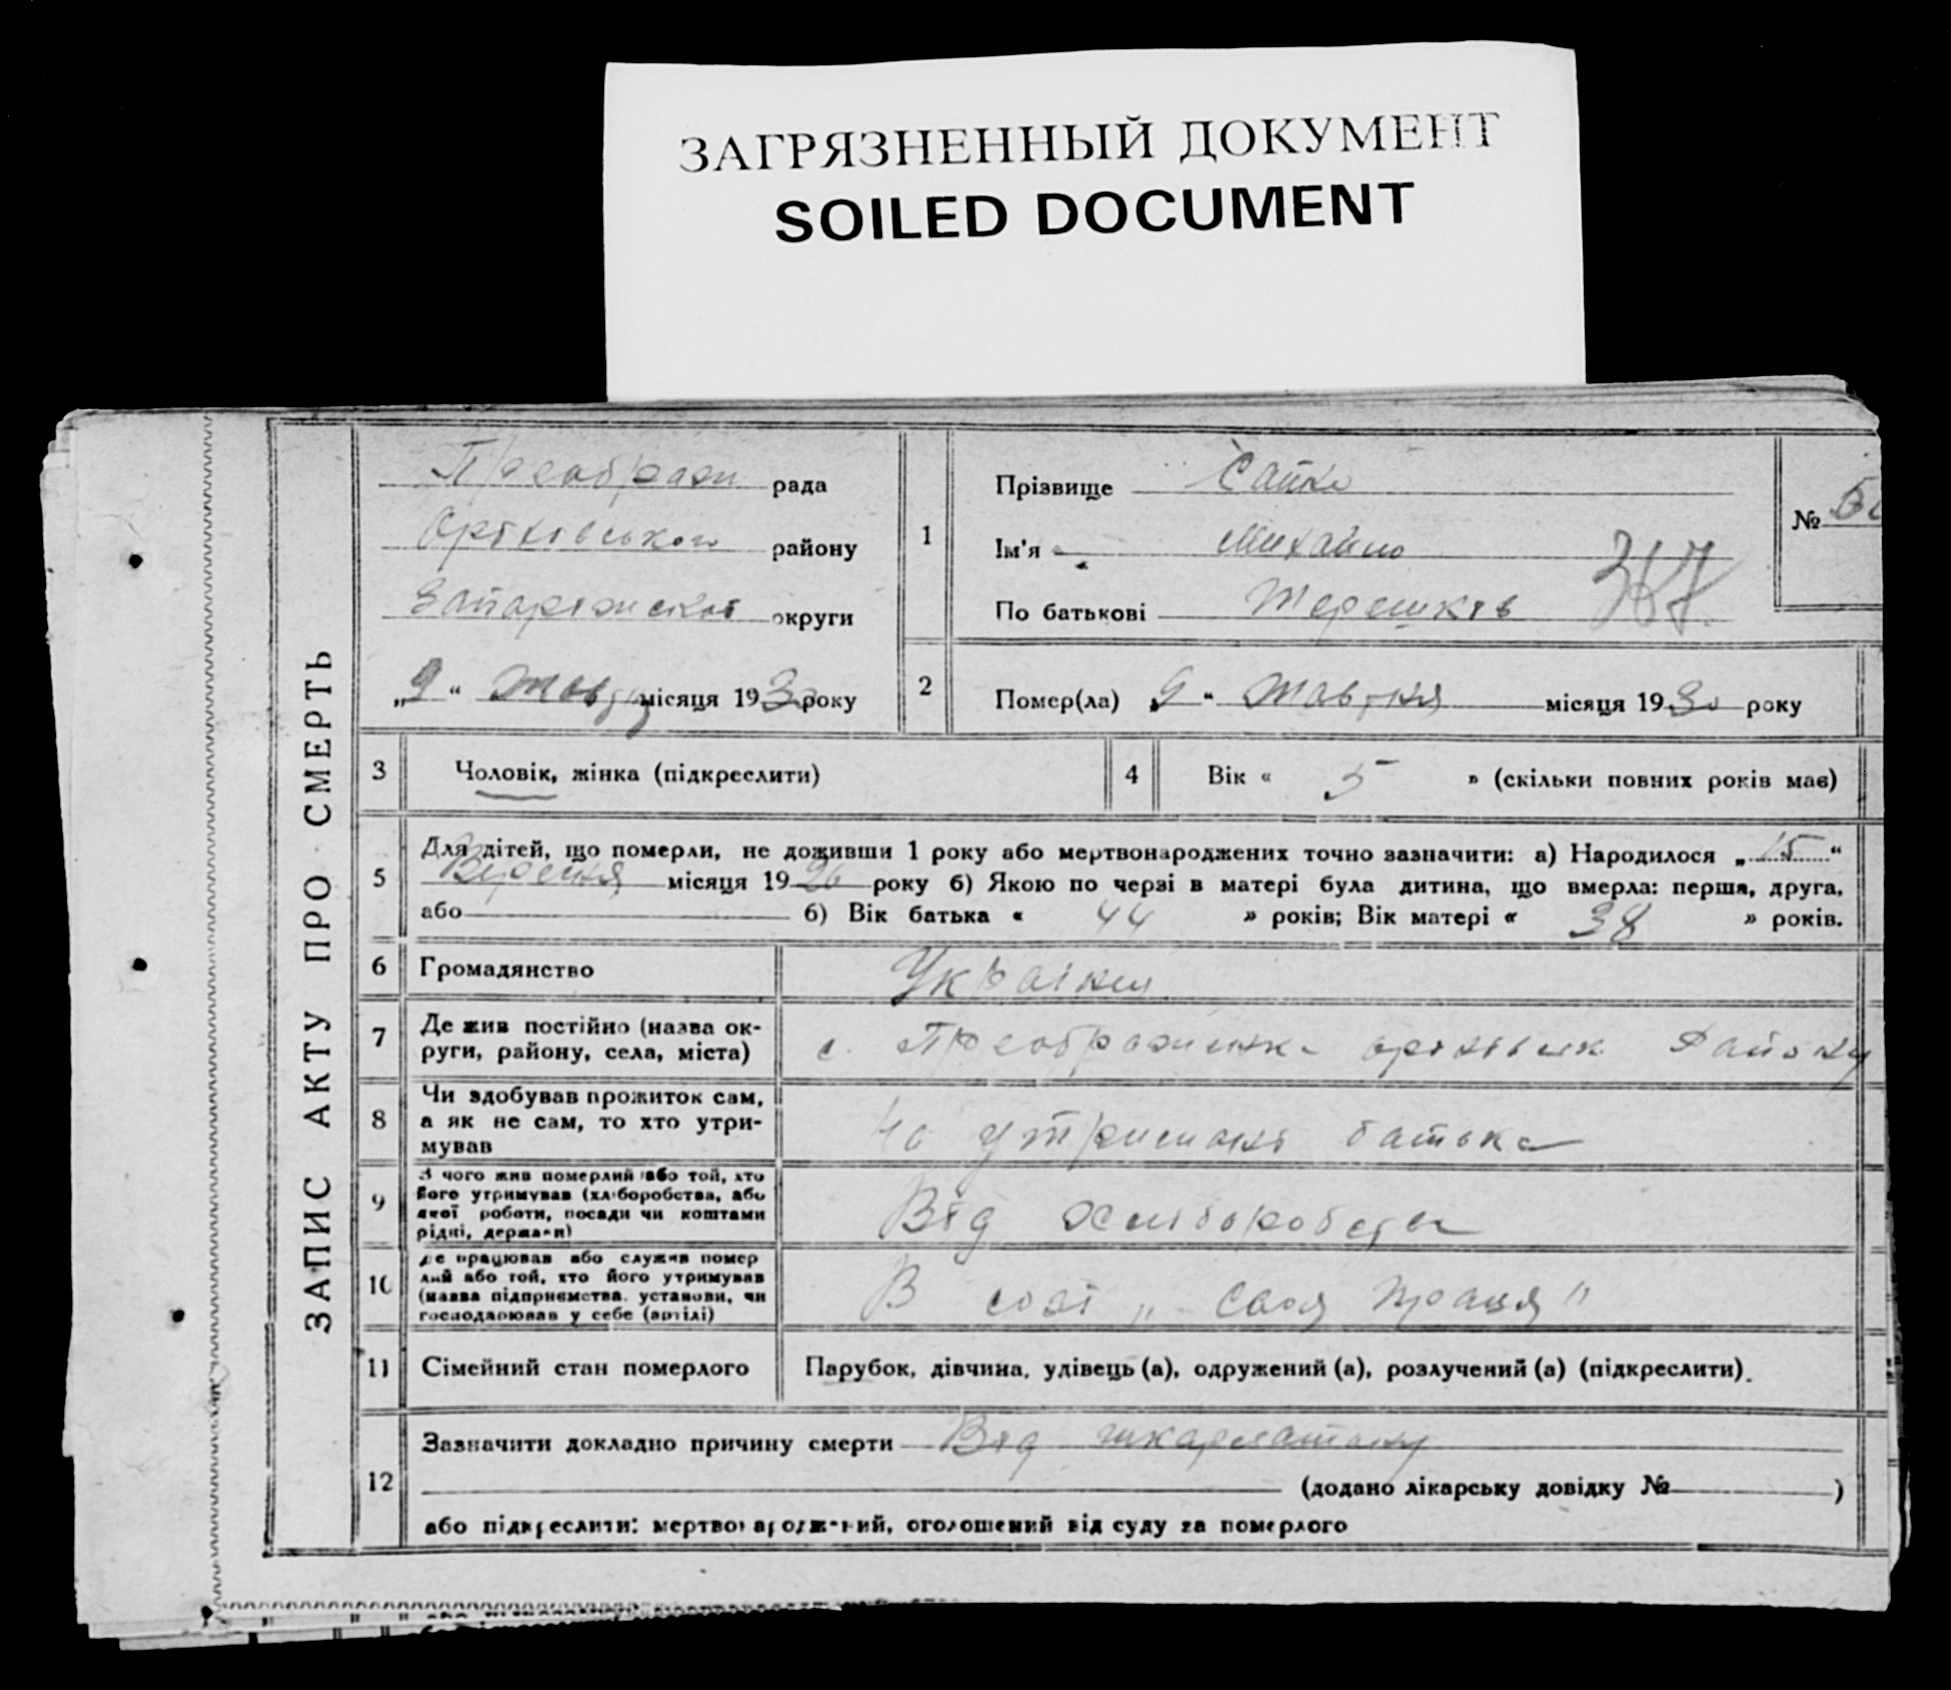 ЗАГРЯЗНЕННЫЙ ДОКУМЕНТ
SOILED DOCUMENT
ЗАПИС АКТУ ПРО СМЕРТЬ
Преображ рада
Оріхівського району
Запоріжської округи
„9“ Жовтня місяця 1930 року
1
Прізвище Сайко
Ім'я Михайло
По батькові Терешків
№
2
Помер(ла) „9“ Жовтня місяця 1930 року
3 Чоловік, жінка (підкреслити)
4 Вік « 5 » (скільки повних років має)
5
Для дітей, що померли, не доживши 1 року або мертвонароджених точно зазначити: а) Народилося „15“
Вересня місяця 1926 року б) Якою по черзі в матері була дитина, що вмерла: перша, друга,
або б) Вік батька « 44 » років; Вік матері « 38 » років.
6 Громадянство
7 Де жив постійно (назва ок-
руги, району, села, міста)
с. Преображенка оріхівськ району
8 Чи здобував прожиток сам,
а як не сам, то хто утри-
мував
на утримані батька
9 З чого жив померлий або той, хто
його утримував (хліборобства, або
якої роботи, посади чи коштами
рідні, держави)
Від хліборобства
10 Де працював або служив помер
лий або той, хто його утримував
(назва підприємства, установи, чи
господарював у себе (артілі)
В созі „Своя праця"
11 Сімейний стан померлого
Парубок, дівчина, удівець (а), одружений (а), розлучений (а) (підкреслити).
12
Зазначити докладно причину смерти Від шкарлатини
(додано лікарську довідку № )
або підкреслити: мертвонароджений, оголошений від суду за померлого